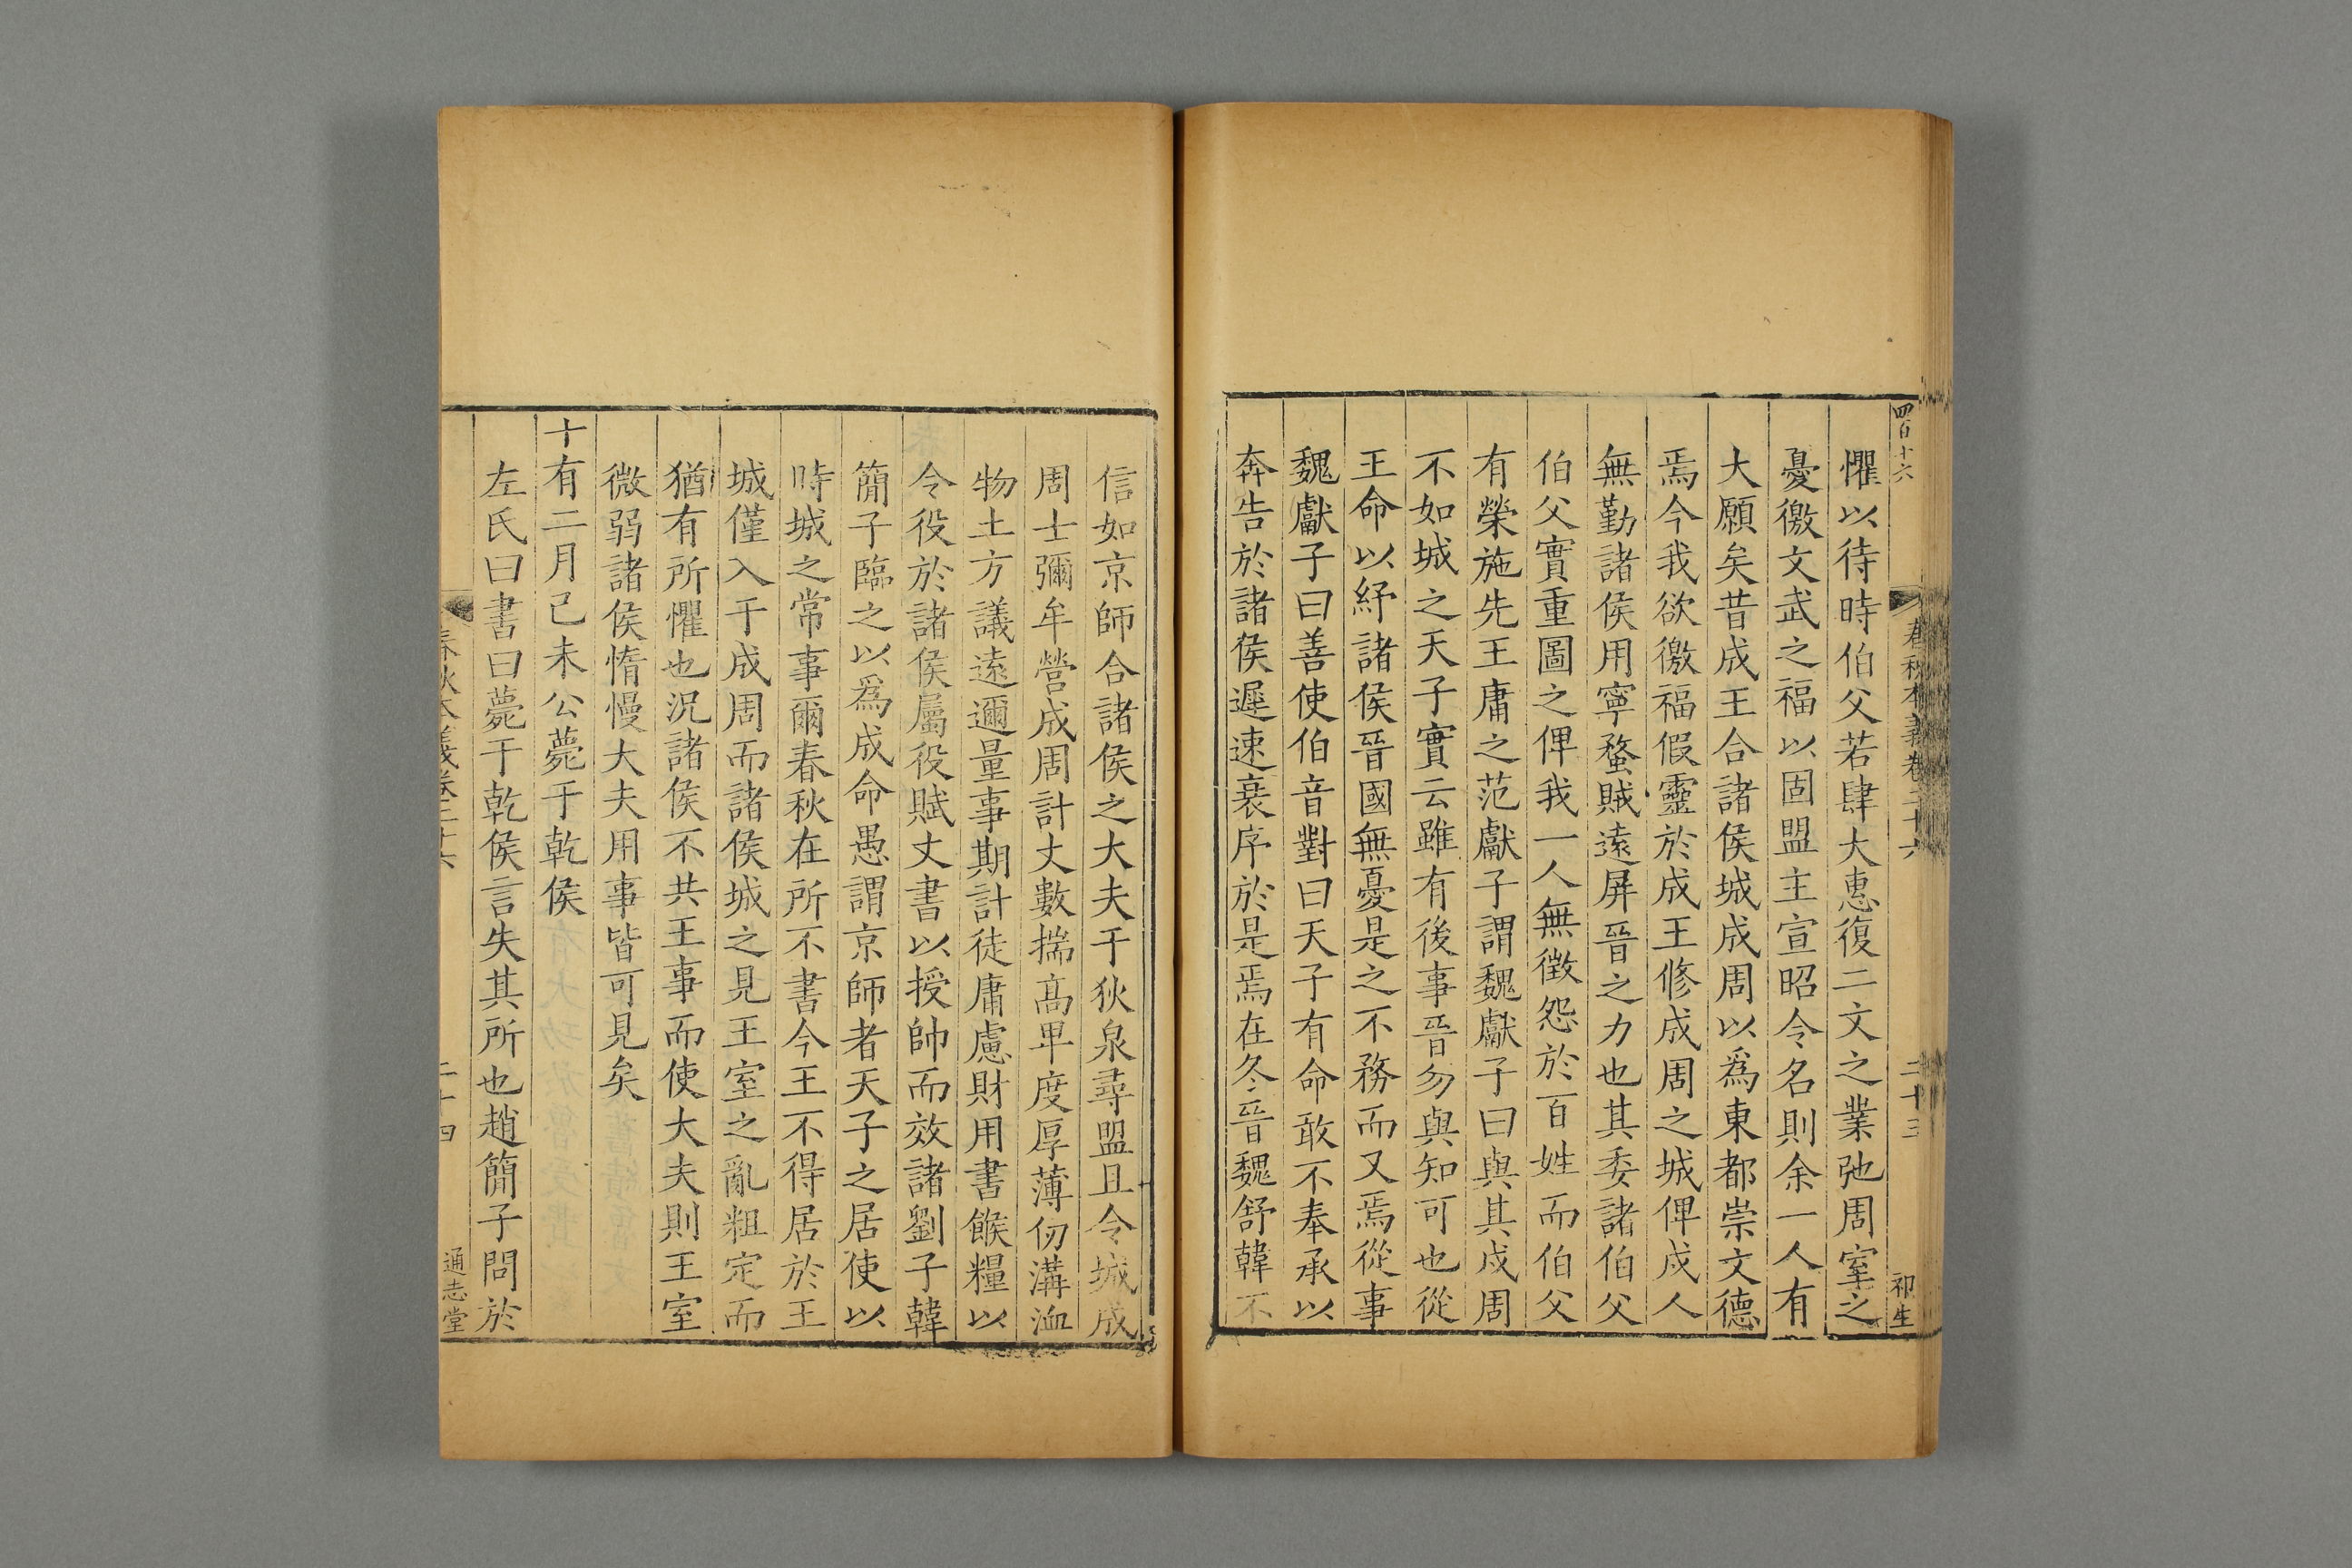 四百十六
春秋本義卷二十六
二十三
祁生
懼以待時伯父若肆大惠復二文之業弛周室之
憂徼文武之福以固盟主宣昭令名則余一人有
大願矣昔成王合諸侯城成周以爲東都崇文德
焉今我欲徼福假靈於成王修成周之城俾戍人
無勤諸侯用寧蝥賊遠屏晉之力也其委諸伯父
伯父實重圖之俾我一人無徴怨於百姓而伯父
有榮施先王庸之范獻子謂魏獻子曰與其戍周
不如城之天子實云雖有後事晉勿與知可也從
王命以紓諸侯晉國無憂是之不務而又焉從事
魏獻子曰善使伯音對曰天子有命敢不奉承以
奔告於諸侯遲速衰序於是焉在冬晉魏舒韓不
信如京師合諸侯之大夫于狄泉尋盟且令城成
周士彌牟營成周計丈數揣高卑度厚薄仞溝洫
物土方議遠邇量事期計徒庸慮財用書餱糧以
令役於諸侯屬役賦丈書以授帥而效諸劉子韓
簡子臨之以爲成命愚謂京師者天子之居使以
時城之常事爾春秋在所不書今王不得居於王
城僅入于成周而諸侯城之見王室之亂粗定而
猶有所懼也況諸侯不共王事而使大夫則王室
微弱諸侯惰慢大夫用事皆可見矣
十有二月己未公薨于乾侯
左氏曰書曰薨于乾侯言失其所也趙簡子問於
春秋本義卷二十六
二十四
通志堂